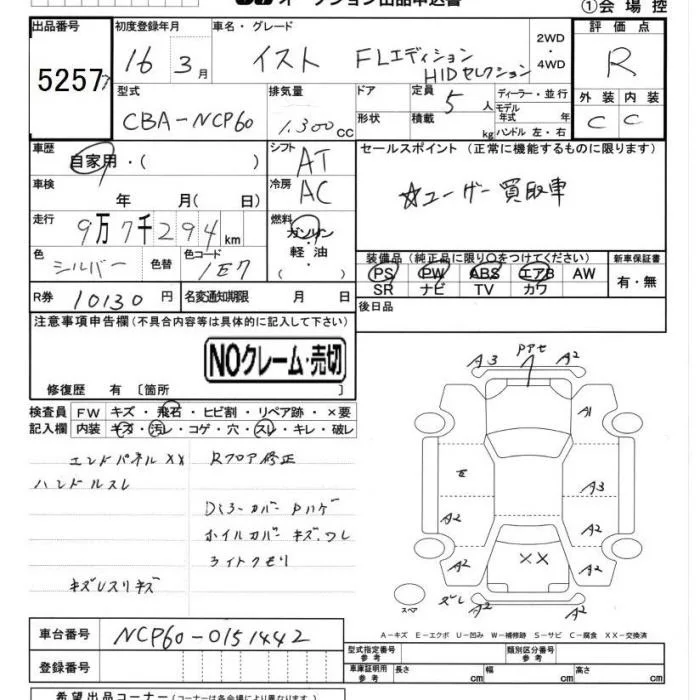 オークション出品申込書
①会場控
出品番号
5257
初度登録年月
16 3月
車名・グレード
イスト FLエディション
HIDセレクション
2WD
・
4WD
評価点
R
型式
CBA-NCP60
排気量
1,300cc
ドア
形状
定員 5人
積載 kg
ディーラー・並行
モデル
年式 年
ハンドル 左・右
外装 内装
C C
車歴
自家用・( )
シフト
AT
セールスポイント (正常に機能するものに限ります)
☆ユーザー買取車
車検
年 月( 日)
冷房
AC
走行
9万7千294km
燃料
ガソリン
・
軽油
・
( )
色
シルバー
色替
色コード
1E7
装備品 (純正品に限り〇をつけてください)
新車保証書
PS PW ABS エアB AW
SR ナビ TV カワ
有・無
R券 10130円
名変通知期限 月 日
後日品
注意事項申告欄(不具合内容等は具体的に記入して下さい)
NOクレーム・売切
修復歴 有〔箇所 〕
検査員
記入欄
FW キズ・飛石・ヒビ割・リペア跡・×要
内装 キズ・汚レ・コゲ・穴・スレ・キレ・破レ
エンドパネルXX Rフロア修正
ハンドルスレ
Dミラーカバー Pハゲ
ホイルカバー キズ、ワレ
ライトクモリ
キズUスリキズ
A3 Pアセ A2
A1
E
A3
A2 A2
XX
A2 A2
ズレ A2
スペア
A-キズ E-エクボ U-凹み W-補修跡 S-サビ C-腐食 XX-交換済
車台番号 NCP60-0151442
登録番号
型式指定番号
参考
類別区分番号
参考
車庫証明用
参考
長さ cm 幅 cm 高さ cm
希望出品コーナー